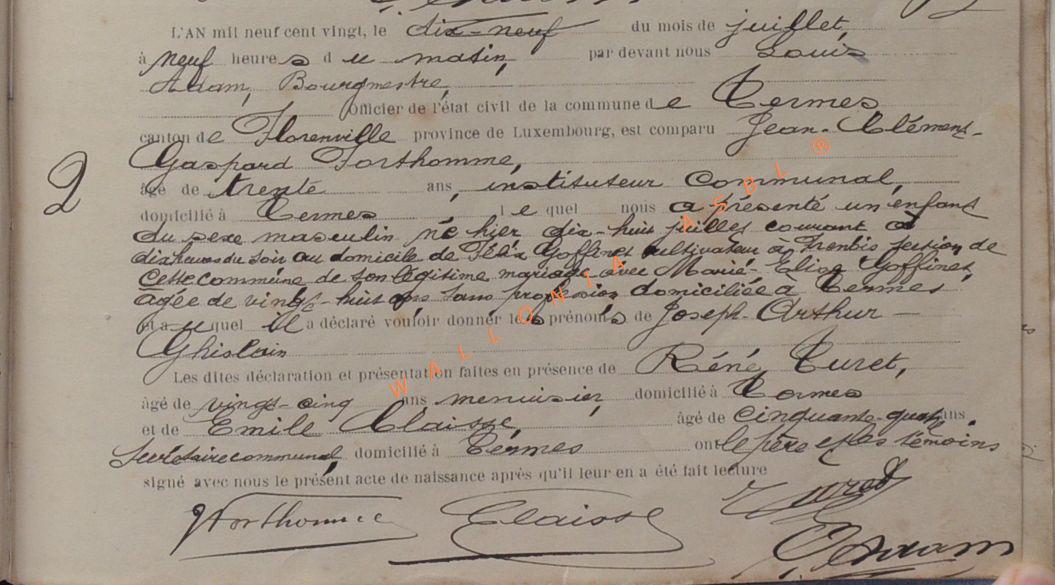 L'AN mil neuf cent vingt, le dix-neuf du mois de juillet,
à neuf heures du matin, par devant nous Louis
Adam, Bourgmestre,
Officier de l'état civil de la commune de Termes
canton de Florenville province de Luxembourg, est comparu Jean-Clément-
Gaspard Forthomme,
2
âgé de trente ans, instituteur communal,
domicilié à Termes lequel nous a présenté un enfant
du sexe masculin né hier dix-huit juillet courant à
dix heures du soir au domicile de Félix Goffinet cultivateur à Frenois section de
cette commune de son légitime mariage avec Marie-Elisa Goffinet,
âgée de vingt-huit ans sans profession domiciliée à Termes
et auquel il a déclaré vouloir donner les prénoms de Joseph-Arthur-
Ghislain
Les dites déclaration et présentation faites en présence de Réné Turet,
âgé de vingt-cinq ans menuisier, domicilié à Termes
et de Emile Claisse, âgé de cinquante-quatre ans
Secrétaire communal, domicilié à Termes ont le père et les témoins
signé avec nous le présent acte de naissance après qu'il leur en a été fait lecture
JForthomme Claisse Turet
L. Adam
WALLONIA ASBL ®